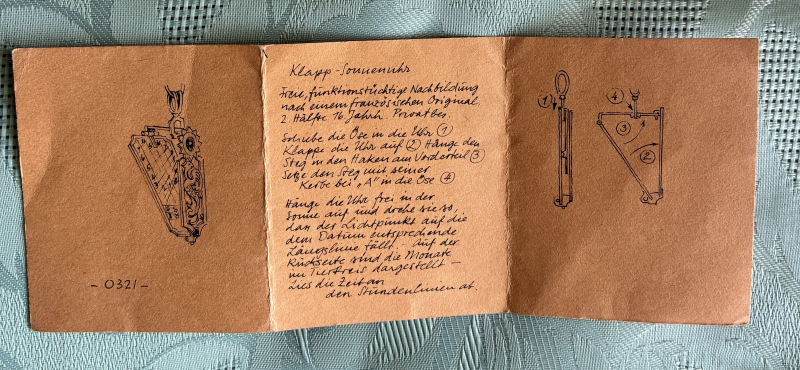 - 0321 -
Klapp-Sonnenuhr
Freie, funktionstüchtige Nachbildung
nach einem französischen Original,
2. Hälfte 16. Jahrh. Privatbes.
Schiebe die Öse in die Uhr ①
Klappe die Uhr auf ② Hänge den
Steg in den Haken am Vorderteil ③
Setze den Steg mit seiner
Kerbe bei „A" in die Öse ④
Hänge die Uhr frei in der
Sonne auf und drehe sie so,
dass der Lichtpunkt auf die
dem Datum entsprechende
Längslinie fällt. - Auf der
Rückseite sind die Monate
im Tierkreis dargestellt -
Lies die Zeit an
den Stundenlinien ab.
①
④
③
②